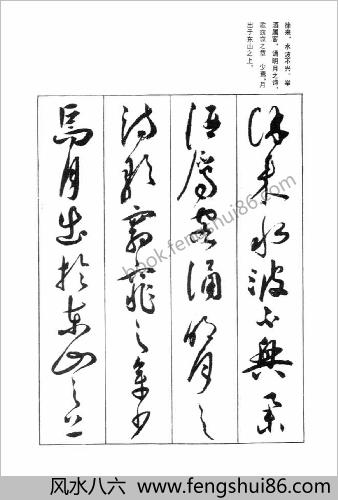 徐来，水波不兴，举
酒属客，诵明月之诗，
歌窈窕之章，少焉，月
出于东山之上。
徐来水波不兴举
酒属客诵明月之
诗歌窈窕之章少
焉月出于东山之上
book.fengshui86.com
风水八六 www.fengshui86.com